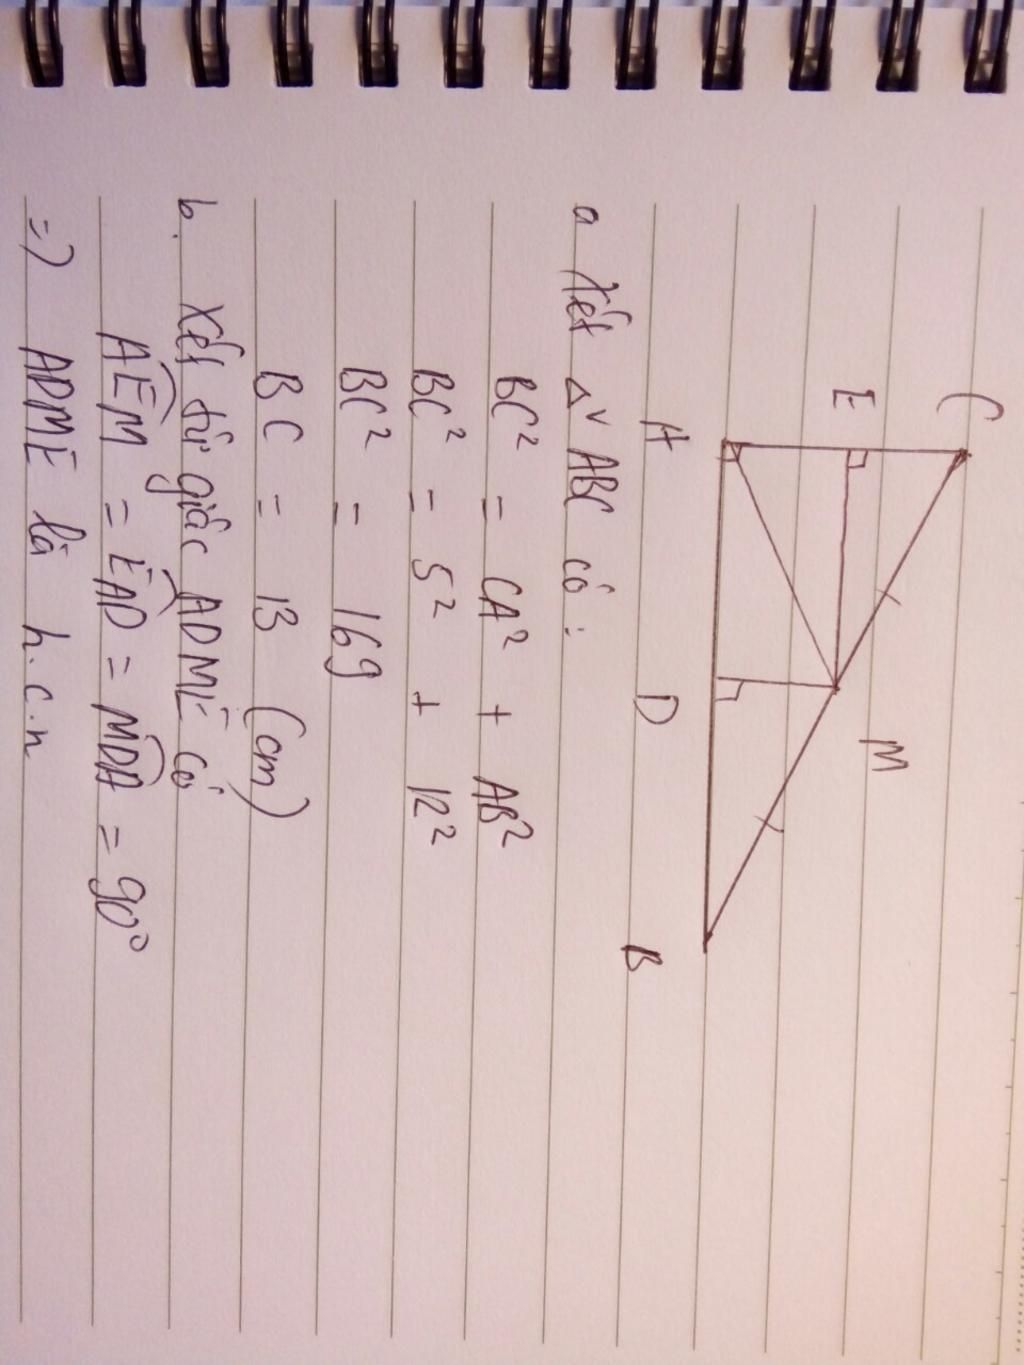 C
E
M
A
D
B
a Xét Δv ABC có :
BC² = CA² + AB²
BC² = 5² + 12²
BC² = 169
BC = 13 (cm)
b. Xét tứ giác ADME có
AEM = EAD = MDA = 90°
=) ADME là h.c.n